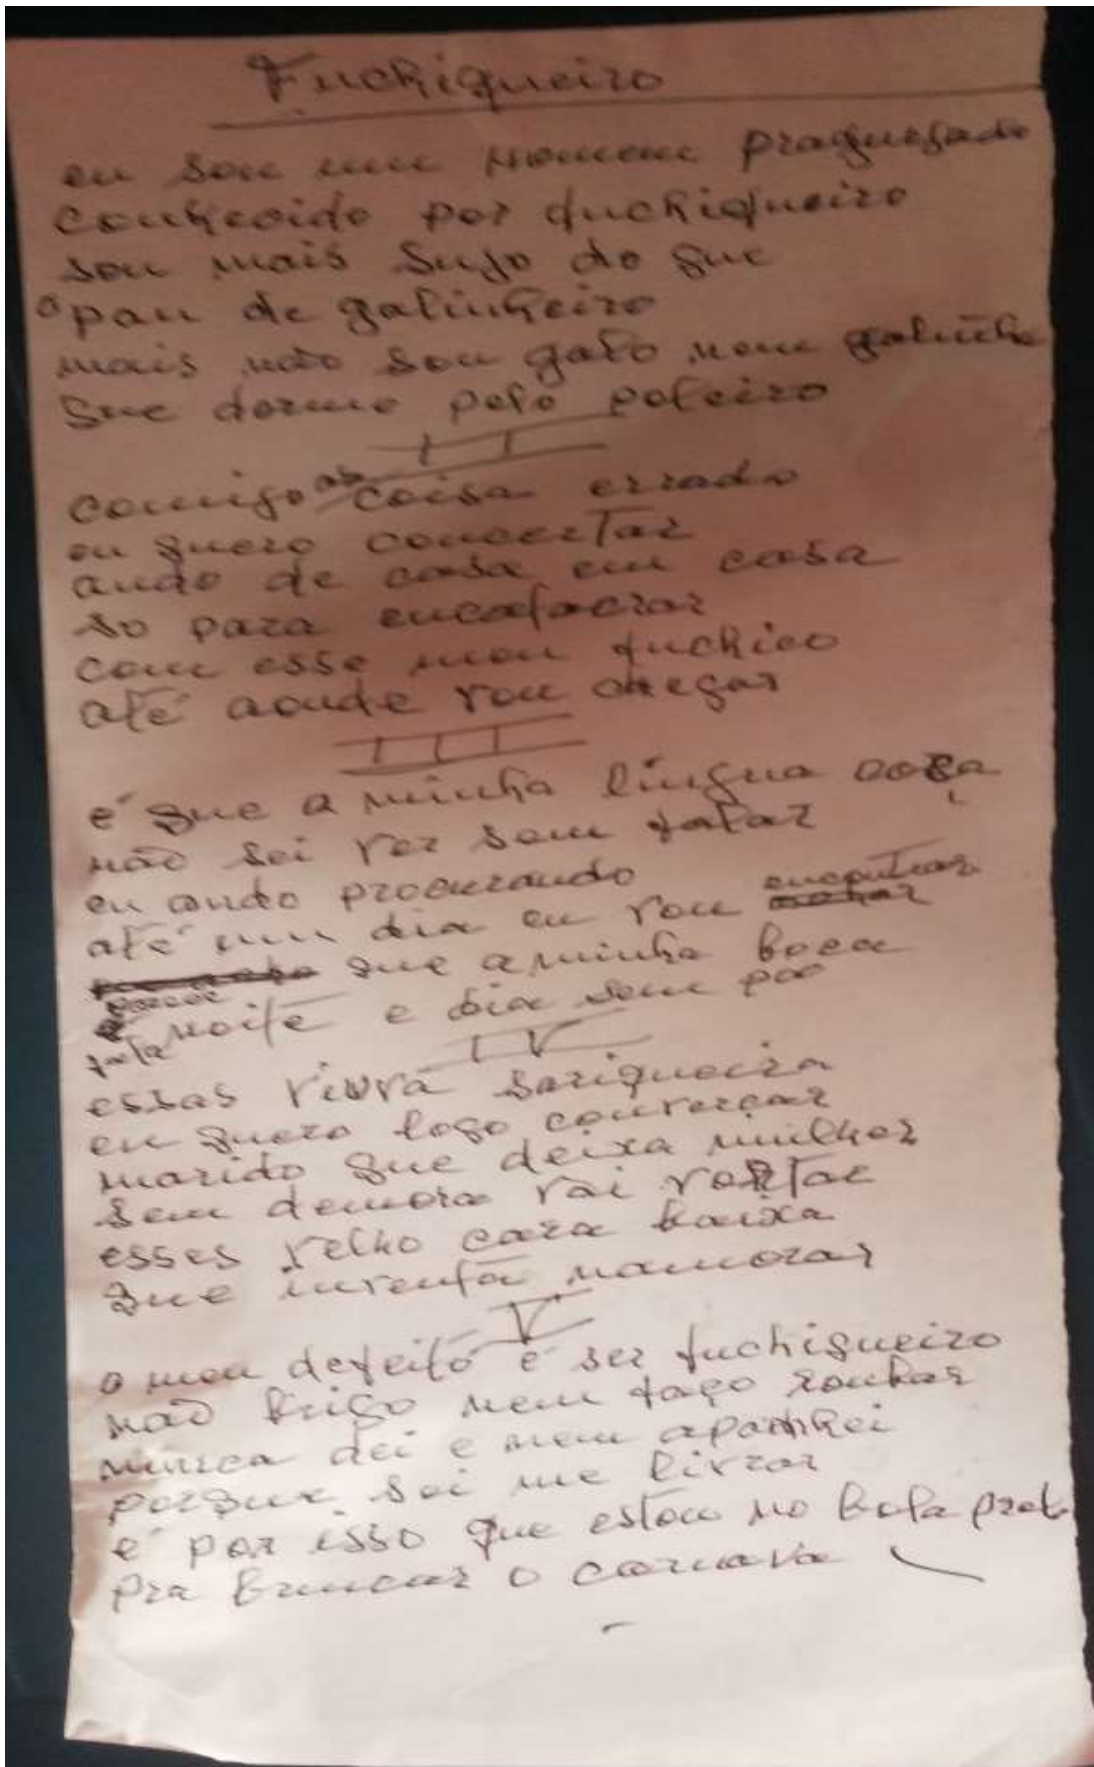 Fuchiqueiro
eu sou um Homem praguejado
conhecido por fuchiqueiro
sou mais sujo do que
o pau de galinheiro
mais não sou galo nem galinha
que dorme pelo poleiro
II
comigo as coisa errada
eu quero concertar
ando de casa em casa
so para encafacrar
com esse meu fuchico
até aonde vou chegar
III
é que a minha língua coça
não sei ver sem falar
eu ando procurando
até um dia eu vou encontrar
que a minha boca
fala noite e dia sem par
IV
essas viuva sarigueira
eu quero logo converçar
marido que deixa mulher
sem demora vai voltar
esses velho cara baixa
que inventa namorar
V
o meu defeito é ser fuchiqueiro
não brigo nem faço zonbar
nunca dei e nem apanhei
porque sei me livrar
é por isso que estou no bola preta
pra brincar o carnava